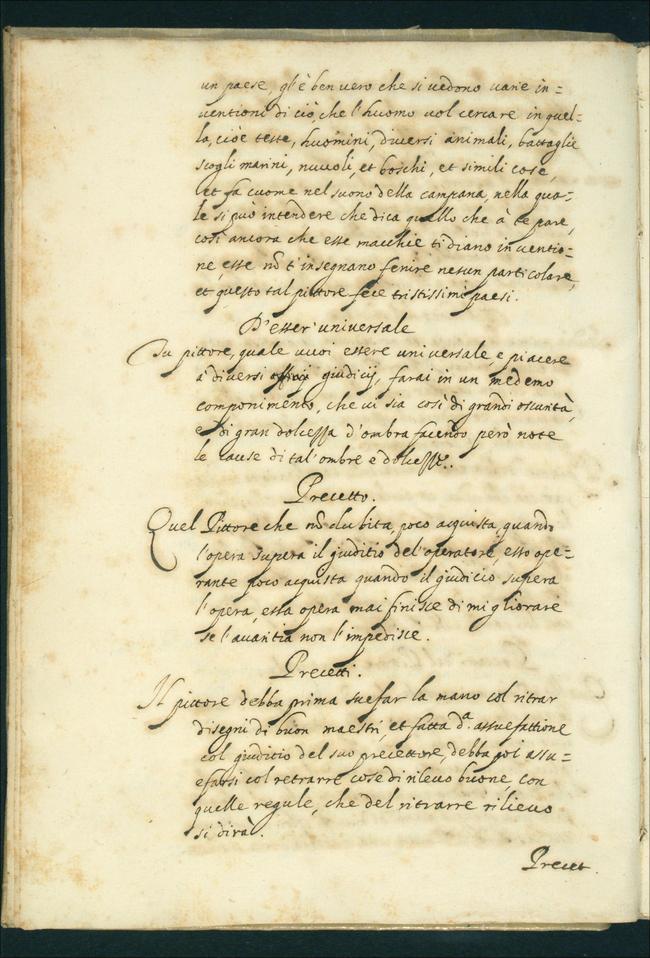 un paese, gl'è ben vero che si vedono varie in=
ventioni di ciò, che l'huomo vol cercare in quel=
la, cioè teste, huomini, diversi animali, battaglie
scogli marini, nuvoli, et boschi, et simili cose,
et fa cuome nel suono della campana, nella qua=
le si può intendere che dica quello che à te pare,
così ancora che esse macchie ti diano inventio=
ne, esse nõ t'insegnano fenire nesun particolare,
et questo tal pittore fece tristissimi paesi.
D'esser universale
Tu pittore, quale vuoi essere universale, e piacere
à diversi giudicij, farai in un medemo
componimento, che vi sia così di grandi oscurità,
e di gran dolcezza d'ombra facendo però note
le cause di tal'ombre e dolcezze.
Precetto.
Quel Pittore che nõ dubita, poco acquista, quando
l'opera supera il giuditio del'operatore, esso ope=
rante poco acquista quando il giudicio supera
l'opera, essa opera mai finisce di migliorare
se l'avaritia non l'impedisce.
Precetti.
Il pittore debba prima suefar la mano col ritrar
disegni di buon maestri, et fatta d.ª assuefattione
col giuditio del suo precettore, debba poi assu=
efarsi col retrarre cose di rilevo buone, con
quelle regule, che del ritrarre rilievo
si dirà.
Precet.